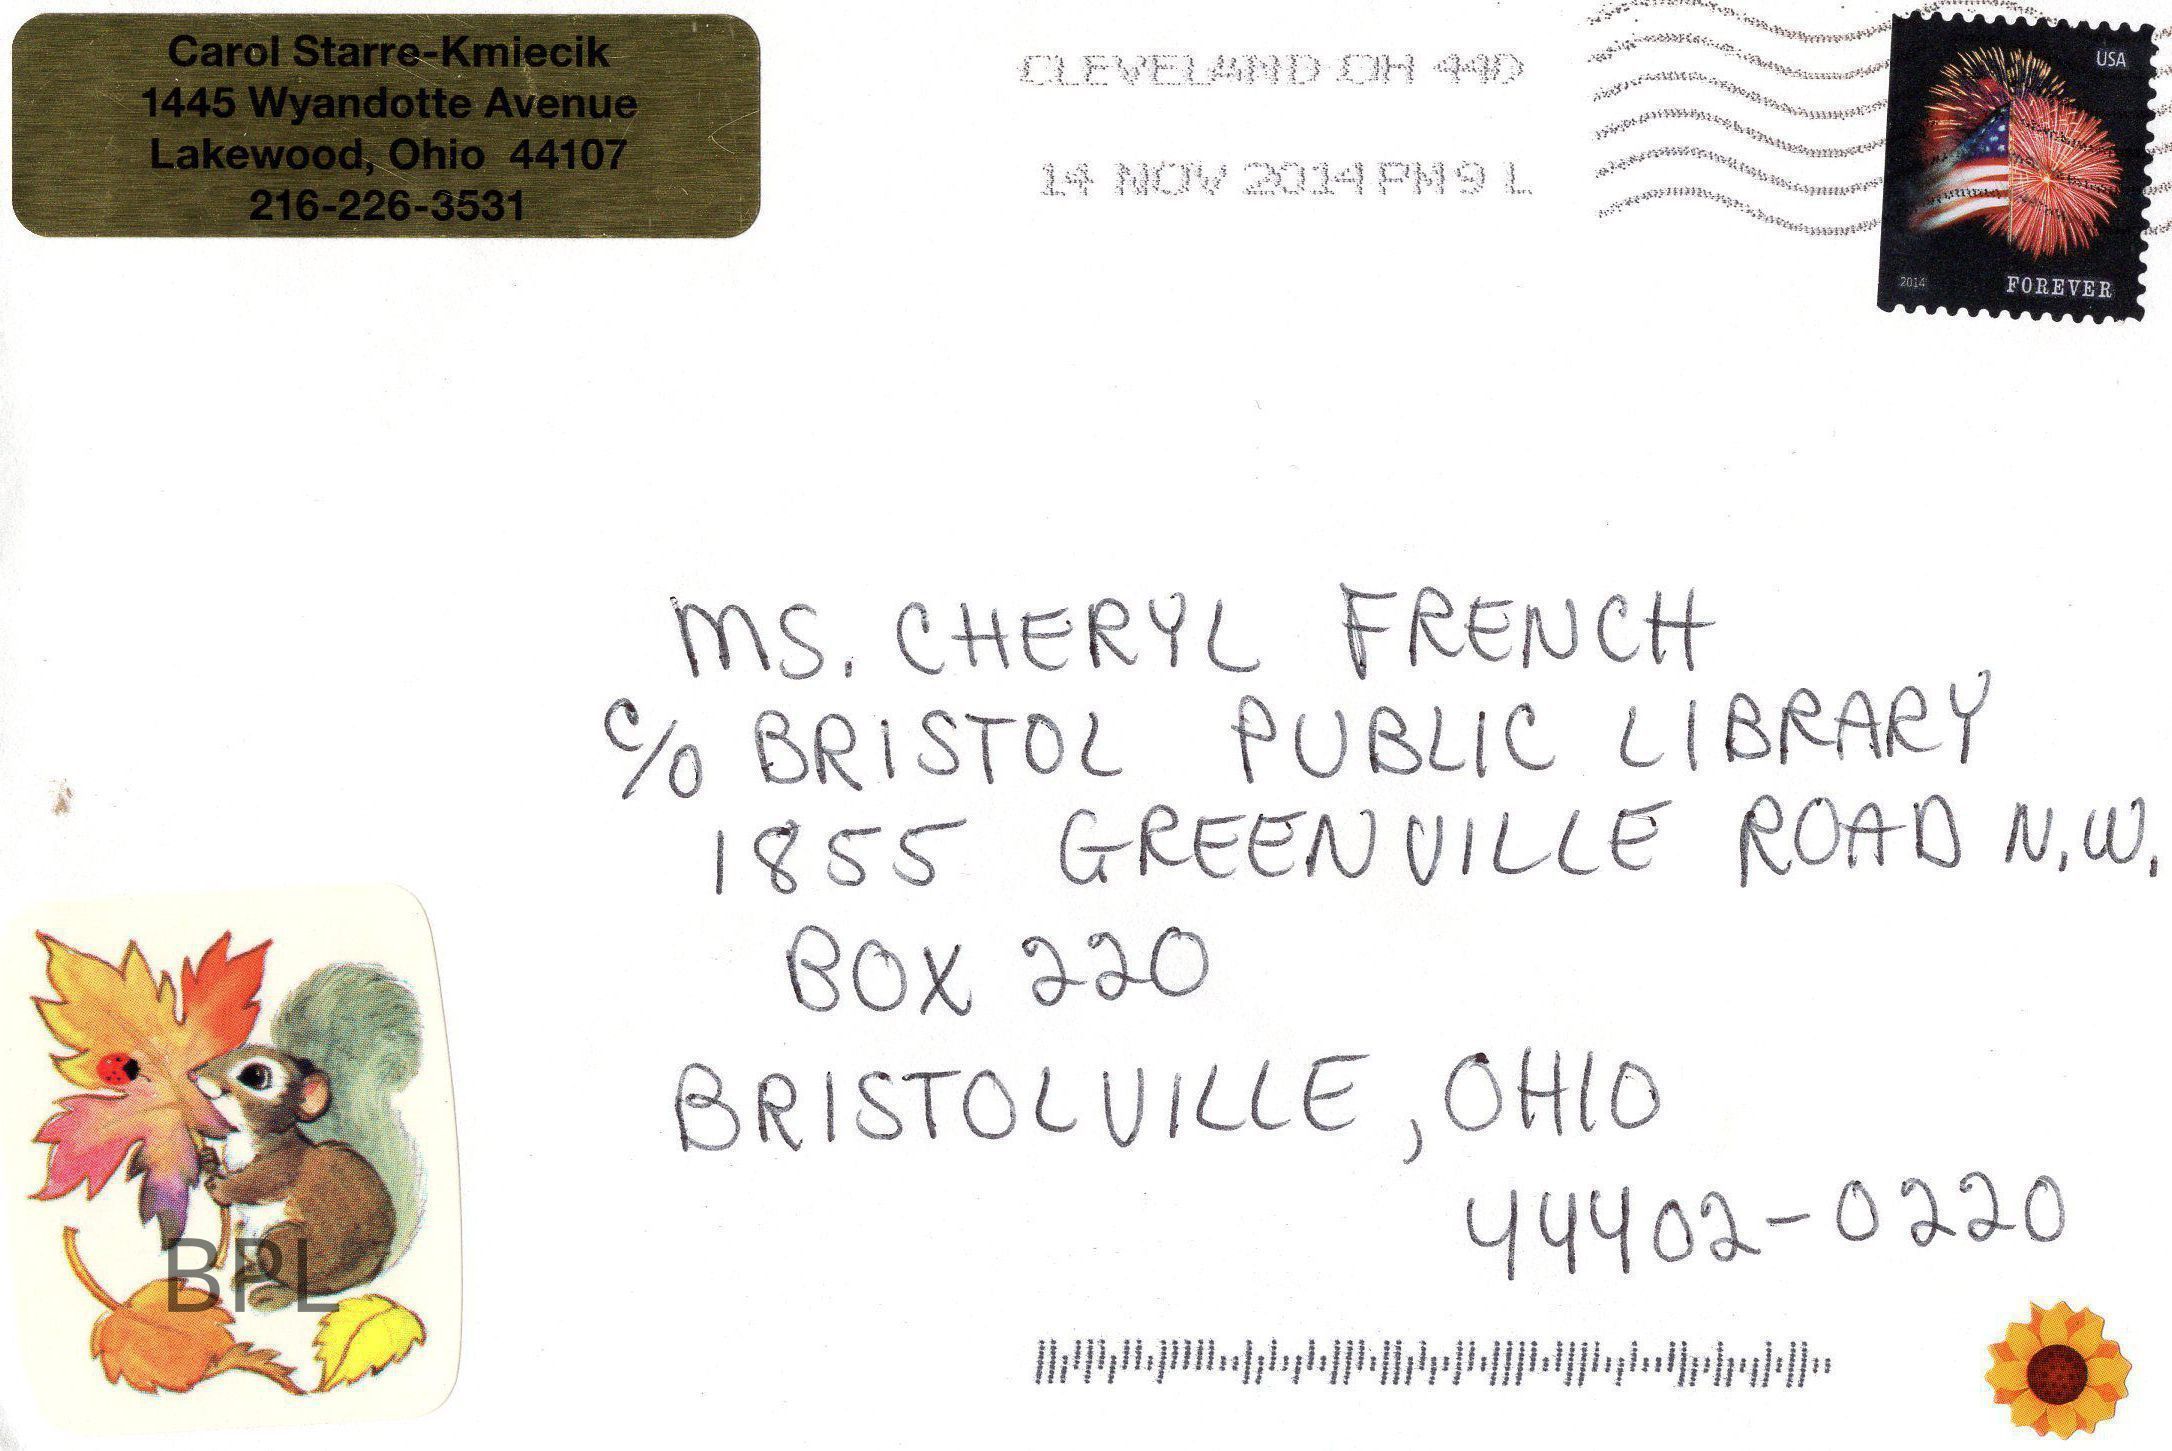 Carol Starre-Kmiecik
1445 Wyandotte Avenue
Lakewood, Ohio 44107
216-226-3531
CLEVELAND OH 440
14 NOV 2014 PM 9 L
USA
2014
FOREVER
MS. CHERYL FRENCH
c/o BRISTOL PUBLIC LIBRARY
1855 GREENVILLE ROAD N.W.
BOX 220
BRISTOLVILLE, OHIO
44402-0220
BPL